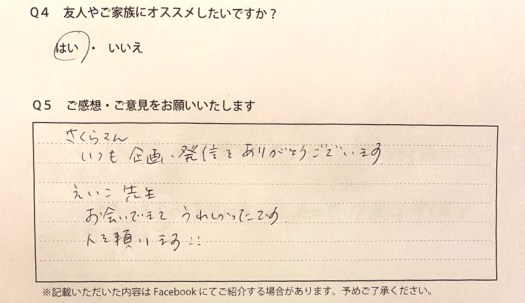 Q4 友人やご家族にオススメしたいですか？
はい ・ いいえ
Q5 ご感想・ご意見をお願いいたします
さくらさん
いつも 企画、発信を ありがとうございます
えいこ 先生
お会いできて うれしかったです
人を頼ります!!
※記載いただいた内容は Facebook にてご紹介する場合があります。予めご了承ください。